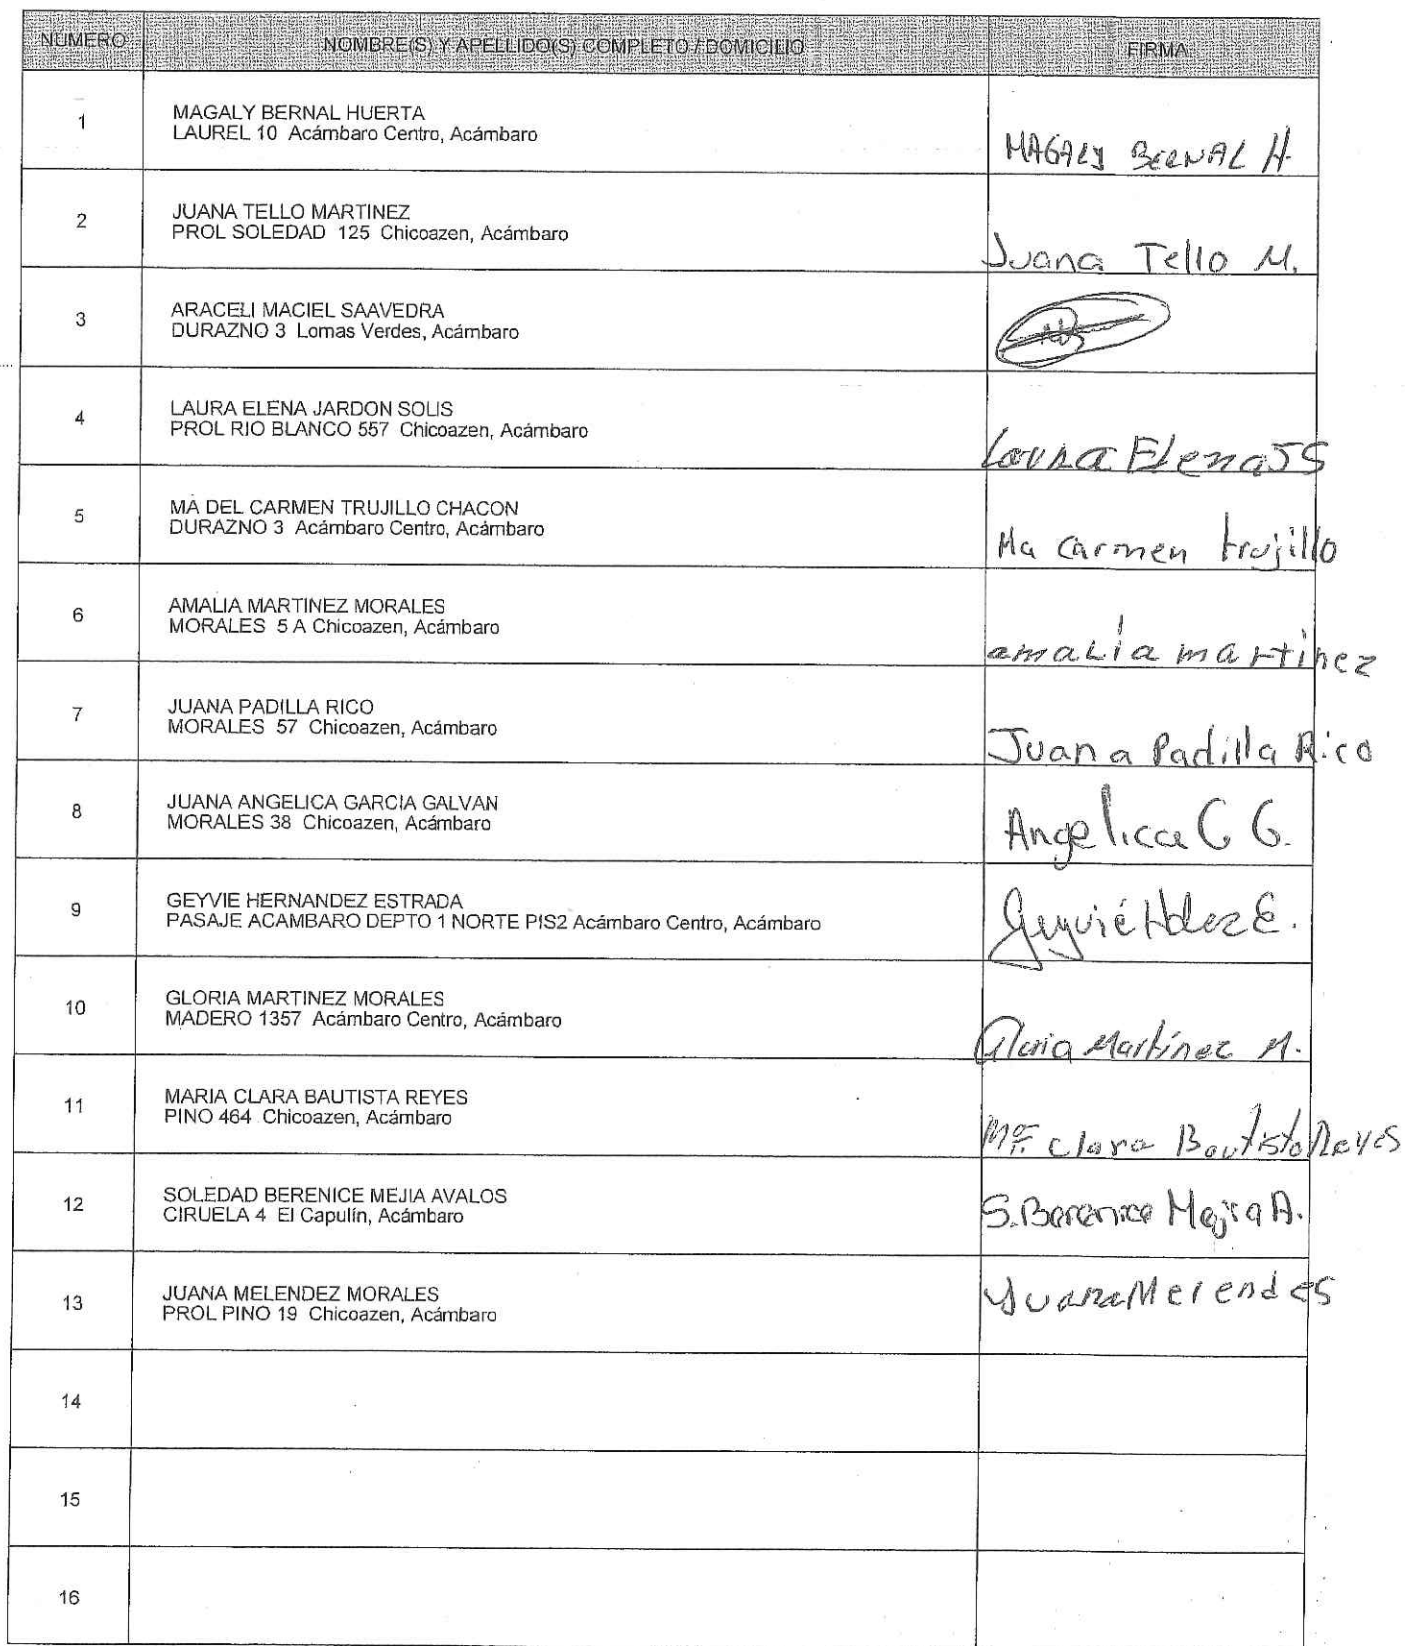 NUMERO NOMBRE(S) Y APELLIDO(S) COMPLETO / DOMICILIO FIRMA
1 MAGALY BERNAL HUERTA
LAUREL 10 Acámbaro Centro, Acámbaro
MAGALY BERNAL H.
2 JUANA TELLO MARTINEZ
PROL SOLEDAD 125 Chicoazen, Acámbaro
Juana Tello M.
3 ARACELI MACIEL SAAVEDRA
DURAZNO 3 Lomas Verdes, Acámbaro
4 LAURA ELENA JARDON SOLIS
PROL RIO BLANCO 557 Chicoazen, Acámbaro
Laura Elena JS
5 MA DEL CARMEN TRUJILLO CHACON
DURAZNO 3 Acámbaro Centro, Acámbaro
Ma Carmen trujillo
6 AMALIA MARTINEZ MORALES
MORALES 5 A Chicoazen, Acámbaro
amalia martinez
7 JUANA PADILLA RICO
MORALES 57 Chicoazen, Acámbaro
Juana Padilla Rico
8 JUANA ANGELICA GARCIA GALVAN
MORALES 38 Chicoazen, Acámbaro
Angelica G G.
9 GEYVIE HERNANDEZ ESTRADA
PASAJE ACAMBARO DEPTO 1 NORTE PIS2 Acámbaro Centro, Acámbaro
Geyvié Hdez E.
10 GLORIA MARTINEZ MORALES
MADERO 1357 Acámbaro Centro, Acámbaro
Gloria Martínez M.
11 MARIA CLARA BAUTISTA REYES
PINO 464 Chicoazen, Acámbaro
Ma. Clara Bautista Reyes
12 SOLEDAD BERENICE MEJIA AVALOS
CIRUELA 4 El Capulín, Acámbaro
S. Berenice Mejia A.
13 JUANA MELENDEZ MORALES
PROL PINO 19 Chicoazen, Acámbaro
Juana Merendes
14
15
16